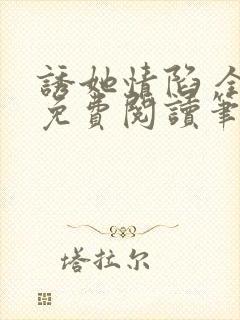 誘她情陷 全
免費閱讀筆
塔拉尔